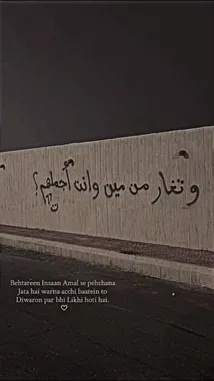 و تغار من مين وانت أجملهم؟
Behtareen Insaan Amal se pehchana
Jata hai warna acchi baatein to
Diwaron par bhi Likhi hoti hai.